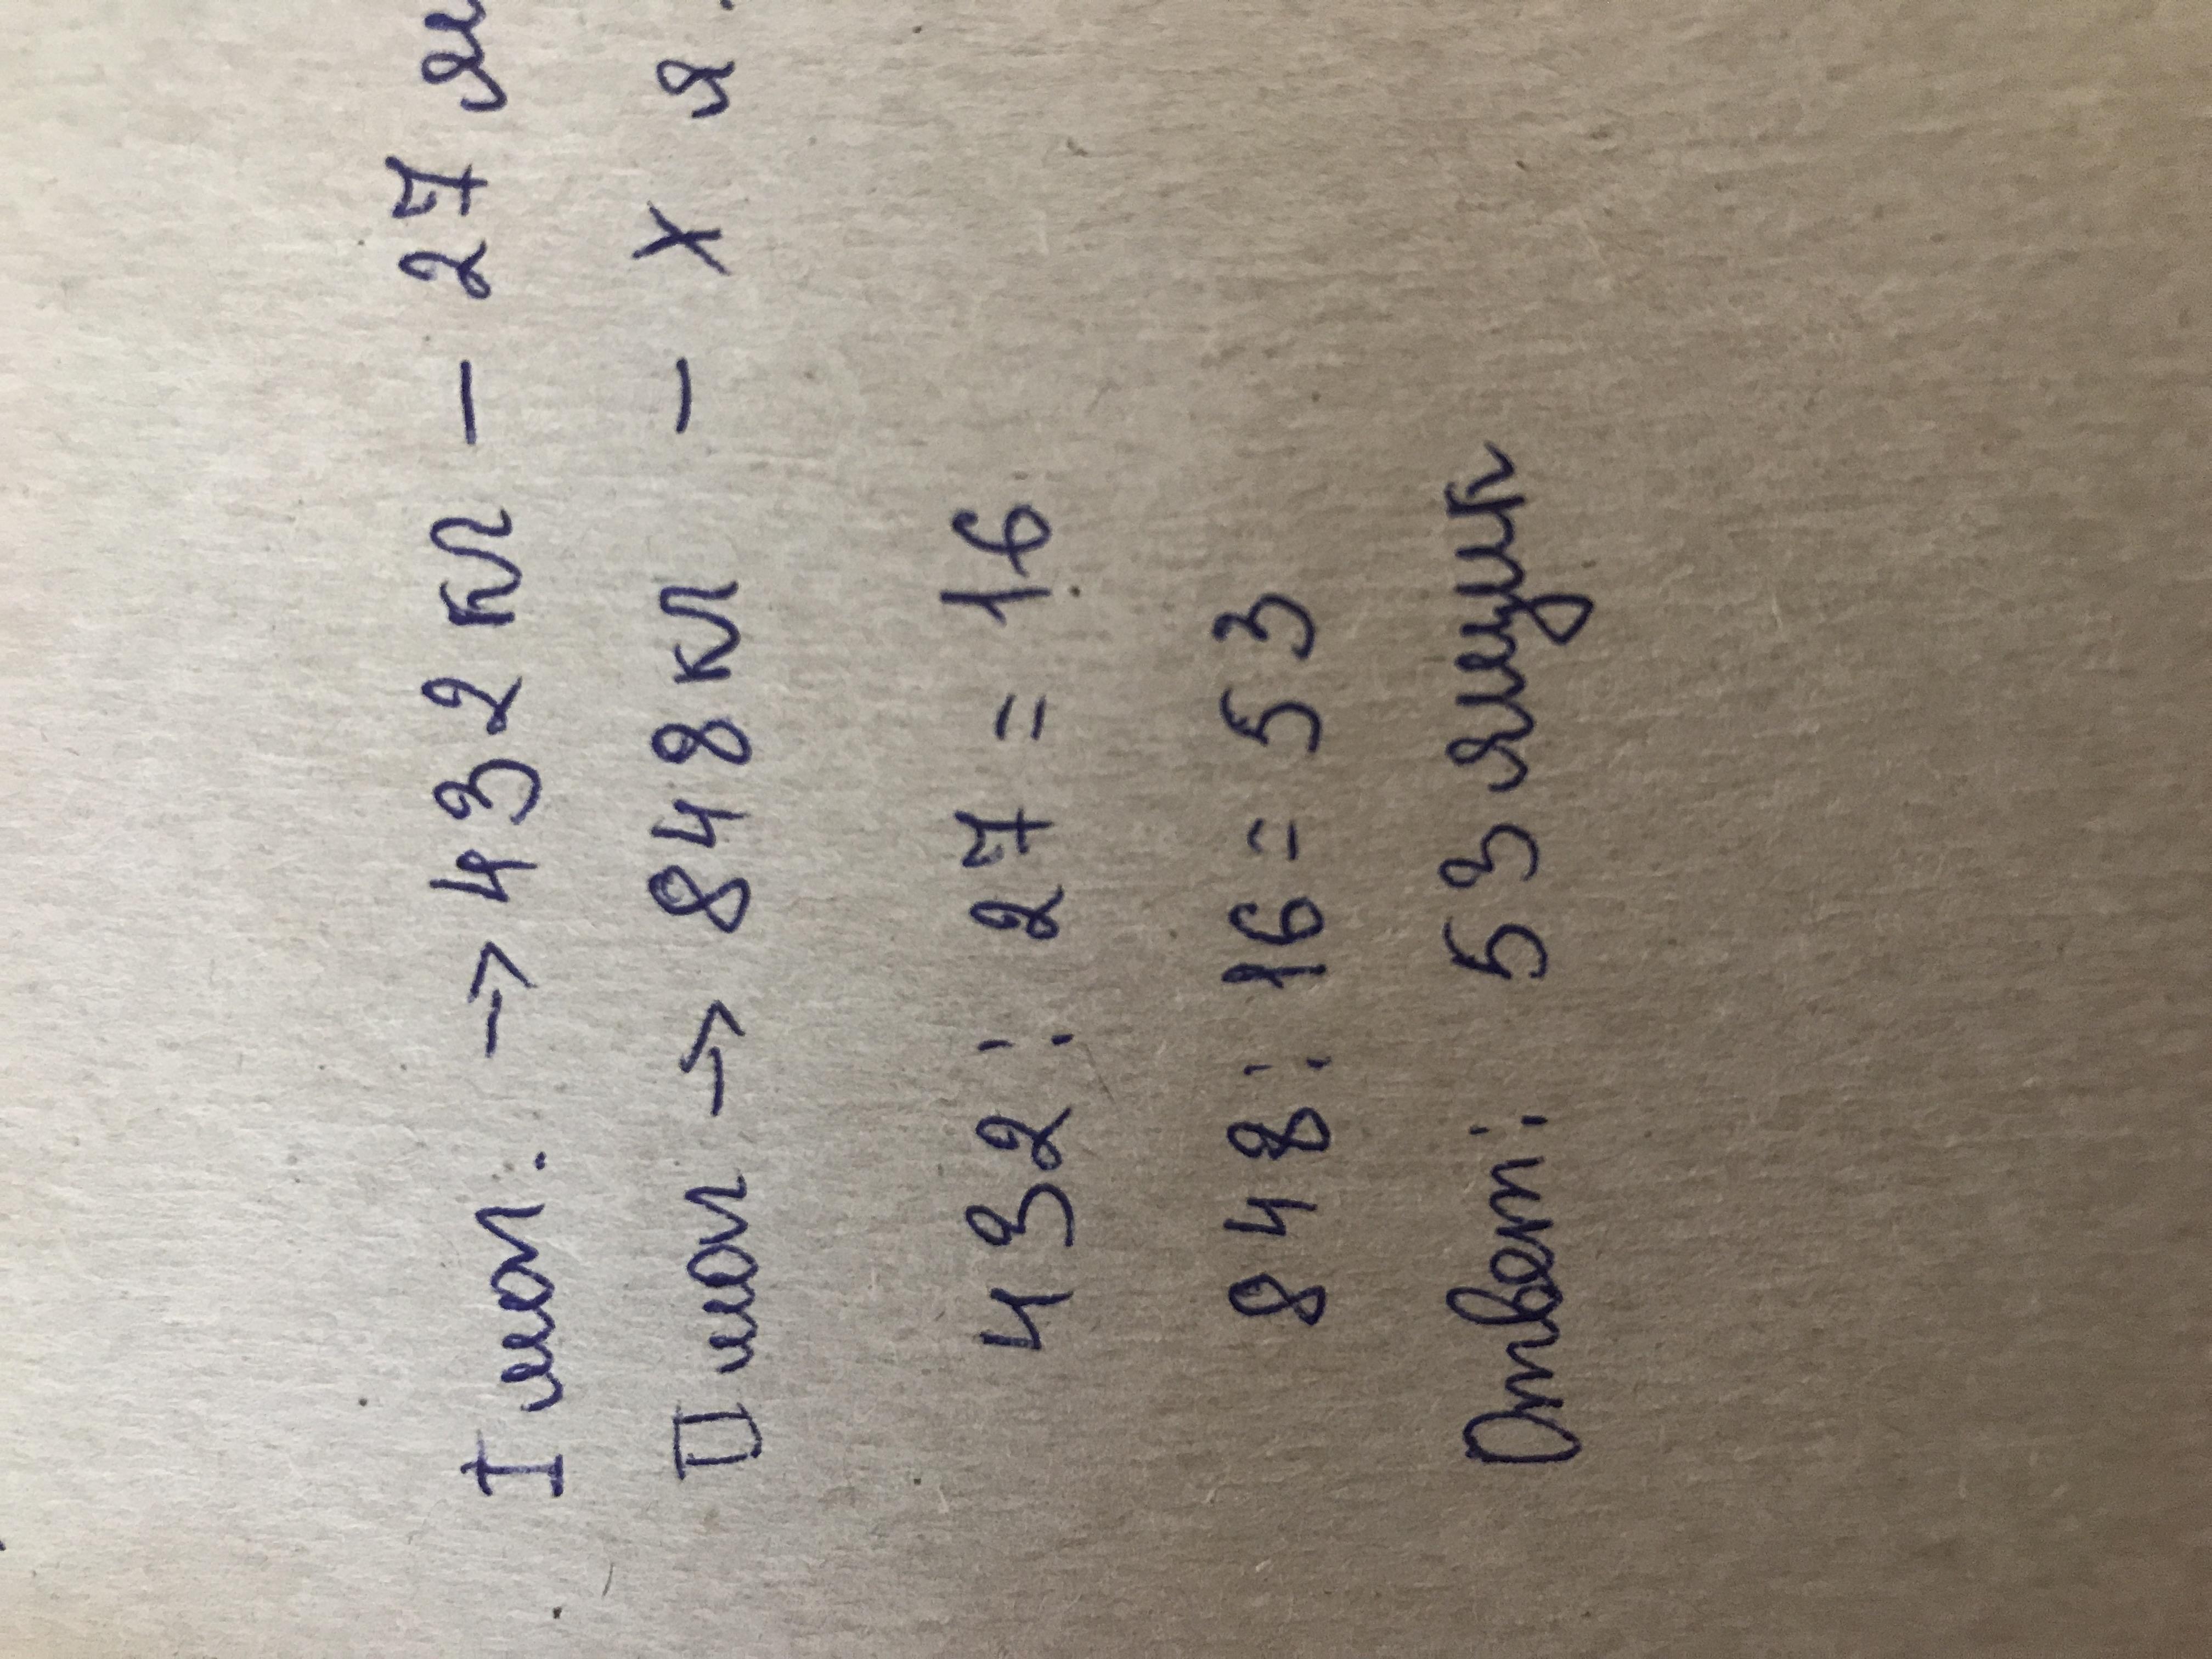 I маг. → 432 кл – 27 ящ
II маг → 848 кл – х я.
432 : 27 = 16
848 : 16 = 53
Ответ: 53 ящик